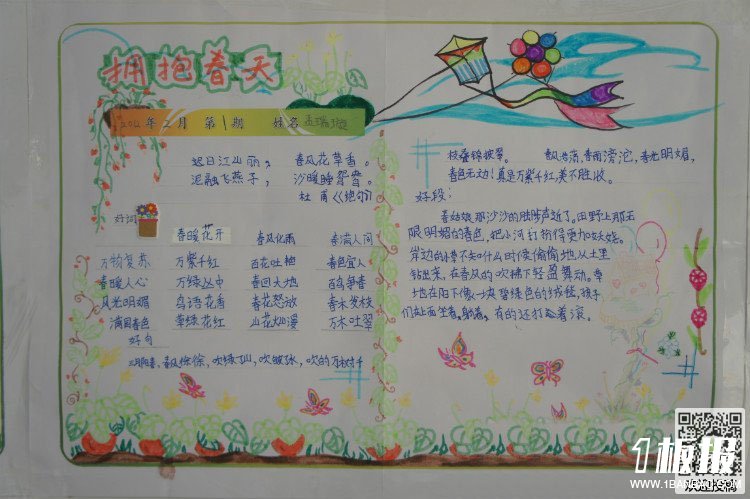 拥抱春天
2012年2月 第1期 姓名
迟日江山丽, 春风花草香。
泥融飞燕子, 沙暖睡鸳鸯。
杜甫《绝句》
好词
春暖花开 春风化雨 春满人间
万物复苏 万紫千红 百花吐艳 春色宜人
春暖人心 万绿丛中 春回大地 百鸟争春
风光明媚 鸟语花香 春花怒放 春木发枝
满园春色 草绿花红 山花烂漫 万木吐翠
好句
三月阳春,春风徐徐,吹绿了山,吹皱了水,吹的万树千
枝叠锦披翠。 春风浩荡,春雨滂沱,春光明媚,
春色无边!真是万紫千红,美不胜收。
好段:
春姑娘那沙沙的脚步声近了。田野上那无
限明媚的春色,把小河打扮得更加妖娆。
岸边的小草不知什么时候偷偷地从土里
钻出来,在春风的吹拂下轻盈舞动。草
地在阳下像一块碧绿色的绒毯,孩子
们在上面坐着,躺着,有的还打起着滚。
1板报
WWW.1BANBAO.COM